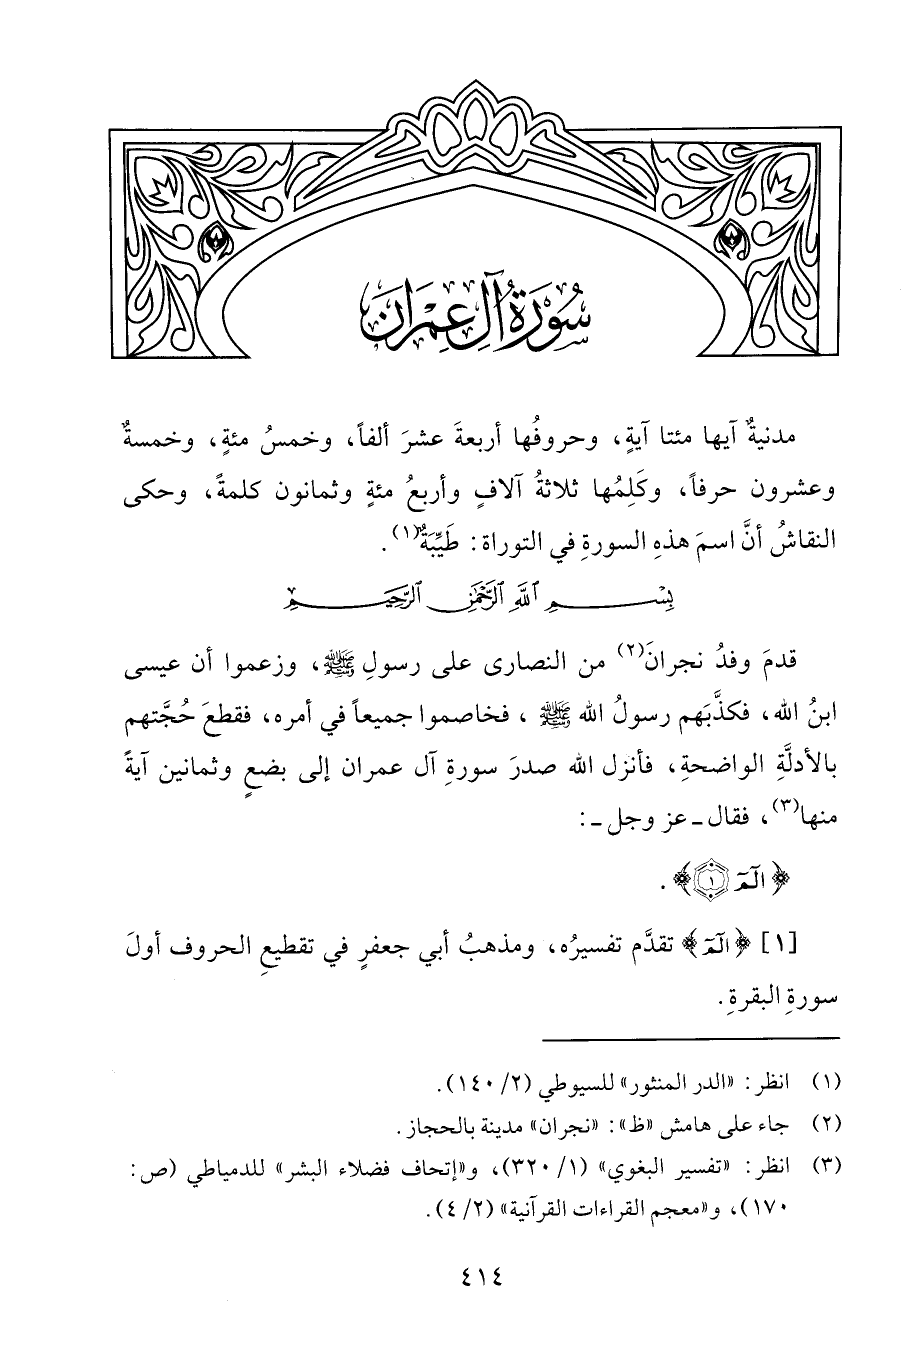 سُورَةُ آلِ عِمْرَان
مدنيةٌ آيها مئتا آيةٍ، وحروفُها أربعةَ عشرَ ألفاً، وخمسُ مئةٍ، وخمسةٌ
وعشرون حرفاً، وكَلِمُها ثلاثةُ آلافٍ وأربعُ مئةٍ وثمانون كلمةً، وحكى
النقاشُ أنَّ اسمَ هذهِ السورةِ في التوراة: طَيِّبَةٌ(١).
بِسْمِ ٱللَّهِ ٱلرَّحْمَٰنِ ٱلرَّحِيمِ
قدمَ وفدُ نجرانَ(٢) من النصارى على رسولِ ﷺ، وزعموا أن عيسى
ابنُ الله، فكذَّبَهم رسولُ الله ﷺ ، فخاصموا جميعاً في أمره، فقطعَ حُجَّتهم
بالأدلَّةِ الواضحةِ، فأنزل الله صدرَ سورةِ آل عمران إلى بضعٍ وثمانين آيةً
منها(٣)، فقال ـ عز وجل ـ:
﴿الٓمٓ ١﴾.
[١] ﴿الٓمٓ﴾ تقدَّم تفسيرُه، ومذهبُ أبي جعفرٍ في تقطيعِ الحروف أولَ
سورةِ البقرةِ.
(١) انظر: «الدر المنثور» للسيوطي (٢/ ١٤٠).
(٢) جاء على هامش «ظ»: «نجران» مدينة بالحجاز.
(٣) انظر: «تفسير البغوي» (١/ ٣٢٠)، و«إتحاف فضلاء البشر» للدمياطي (ص:
١٧٠)، و«معجم القراءات القرآنية» (٢/ ٤).
٤١٤